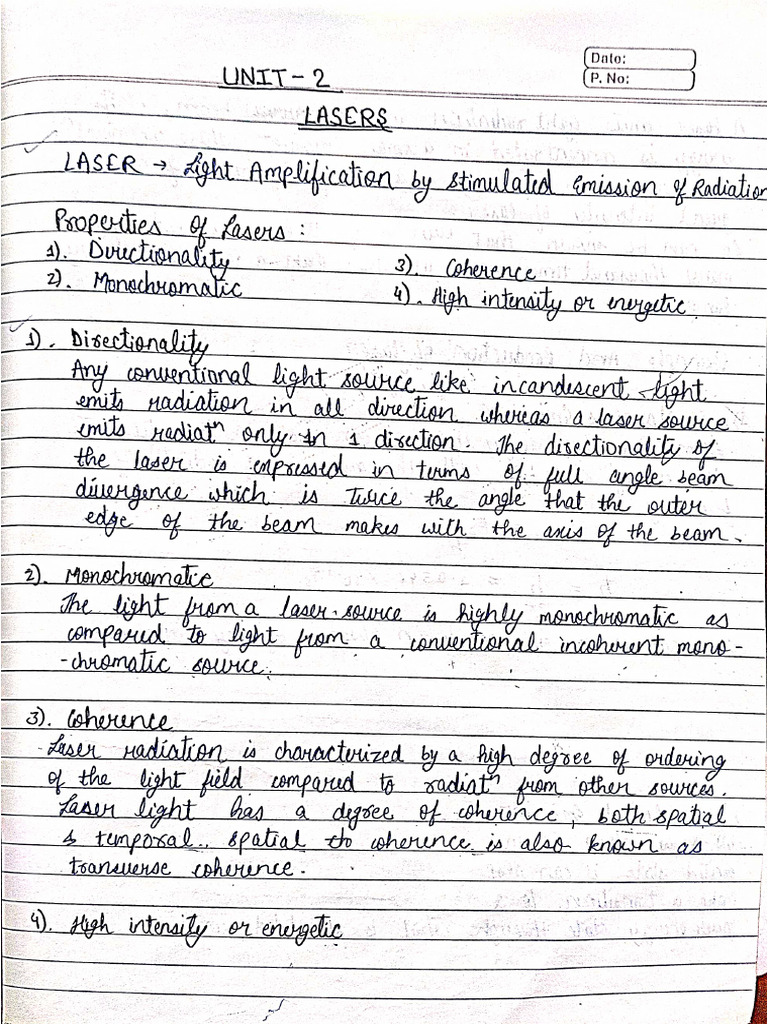 Date:
P. No:
UNIT-2
LASERS
LASER → Light Amplification by Stimulated Emission of Radiation
Properties of Lasers :
1). Directionality
2). Monochromatic
3). Coherence
4). High intensity or energetic
1). Directionality
Any conventional light source like incandescent light
emits radiation in all direction whereas a laser source
emits radiatⁿ only in 1 direction. The directionality of
the laser is expressed in terms of full angle beam
divergence which is twice the angle that the outer
edge of the beam makes with the axis of the beam.
2). Monochromatic
The light from a laser source is highly monochromatic as
compared to light from a conventional incoherent mono-
-chromatic source.
3). Coherence
Laser radiation is characterized by a high degree of ordering
of the light field compared to radiatⁿ from other sources.
Laser light has a degree of coherence, both spatial
& temporal. spatial coherence is also known as
transverse coherence.
4). High intensity or energetic